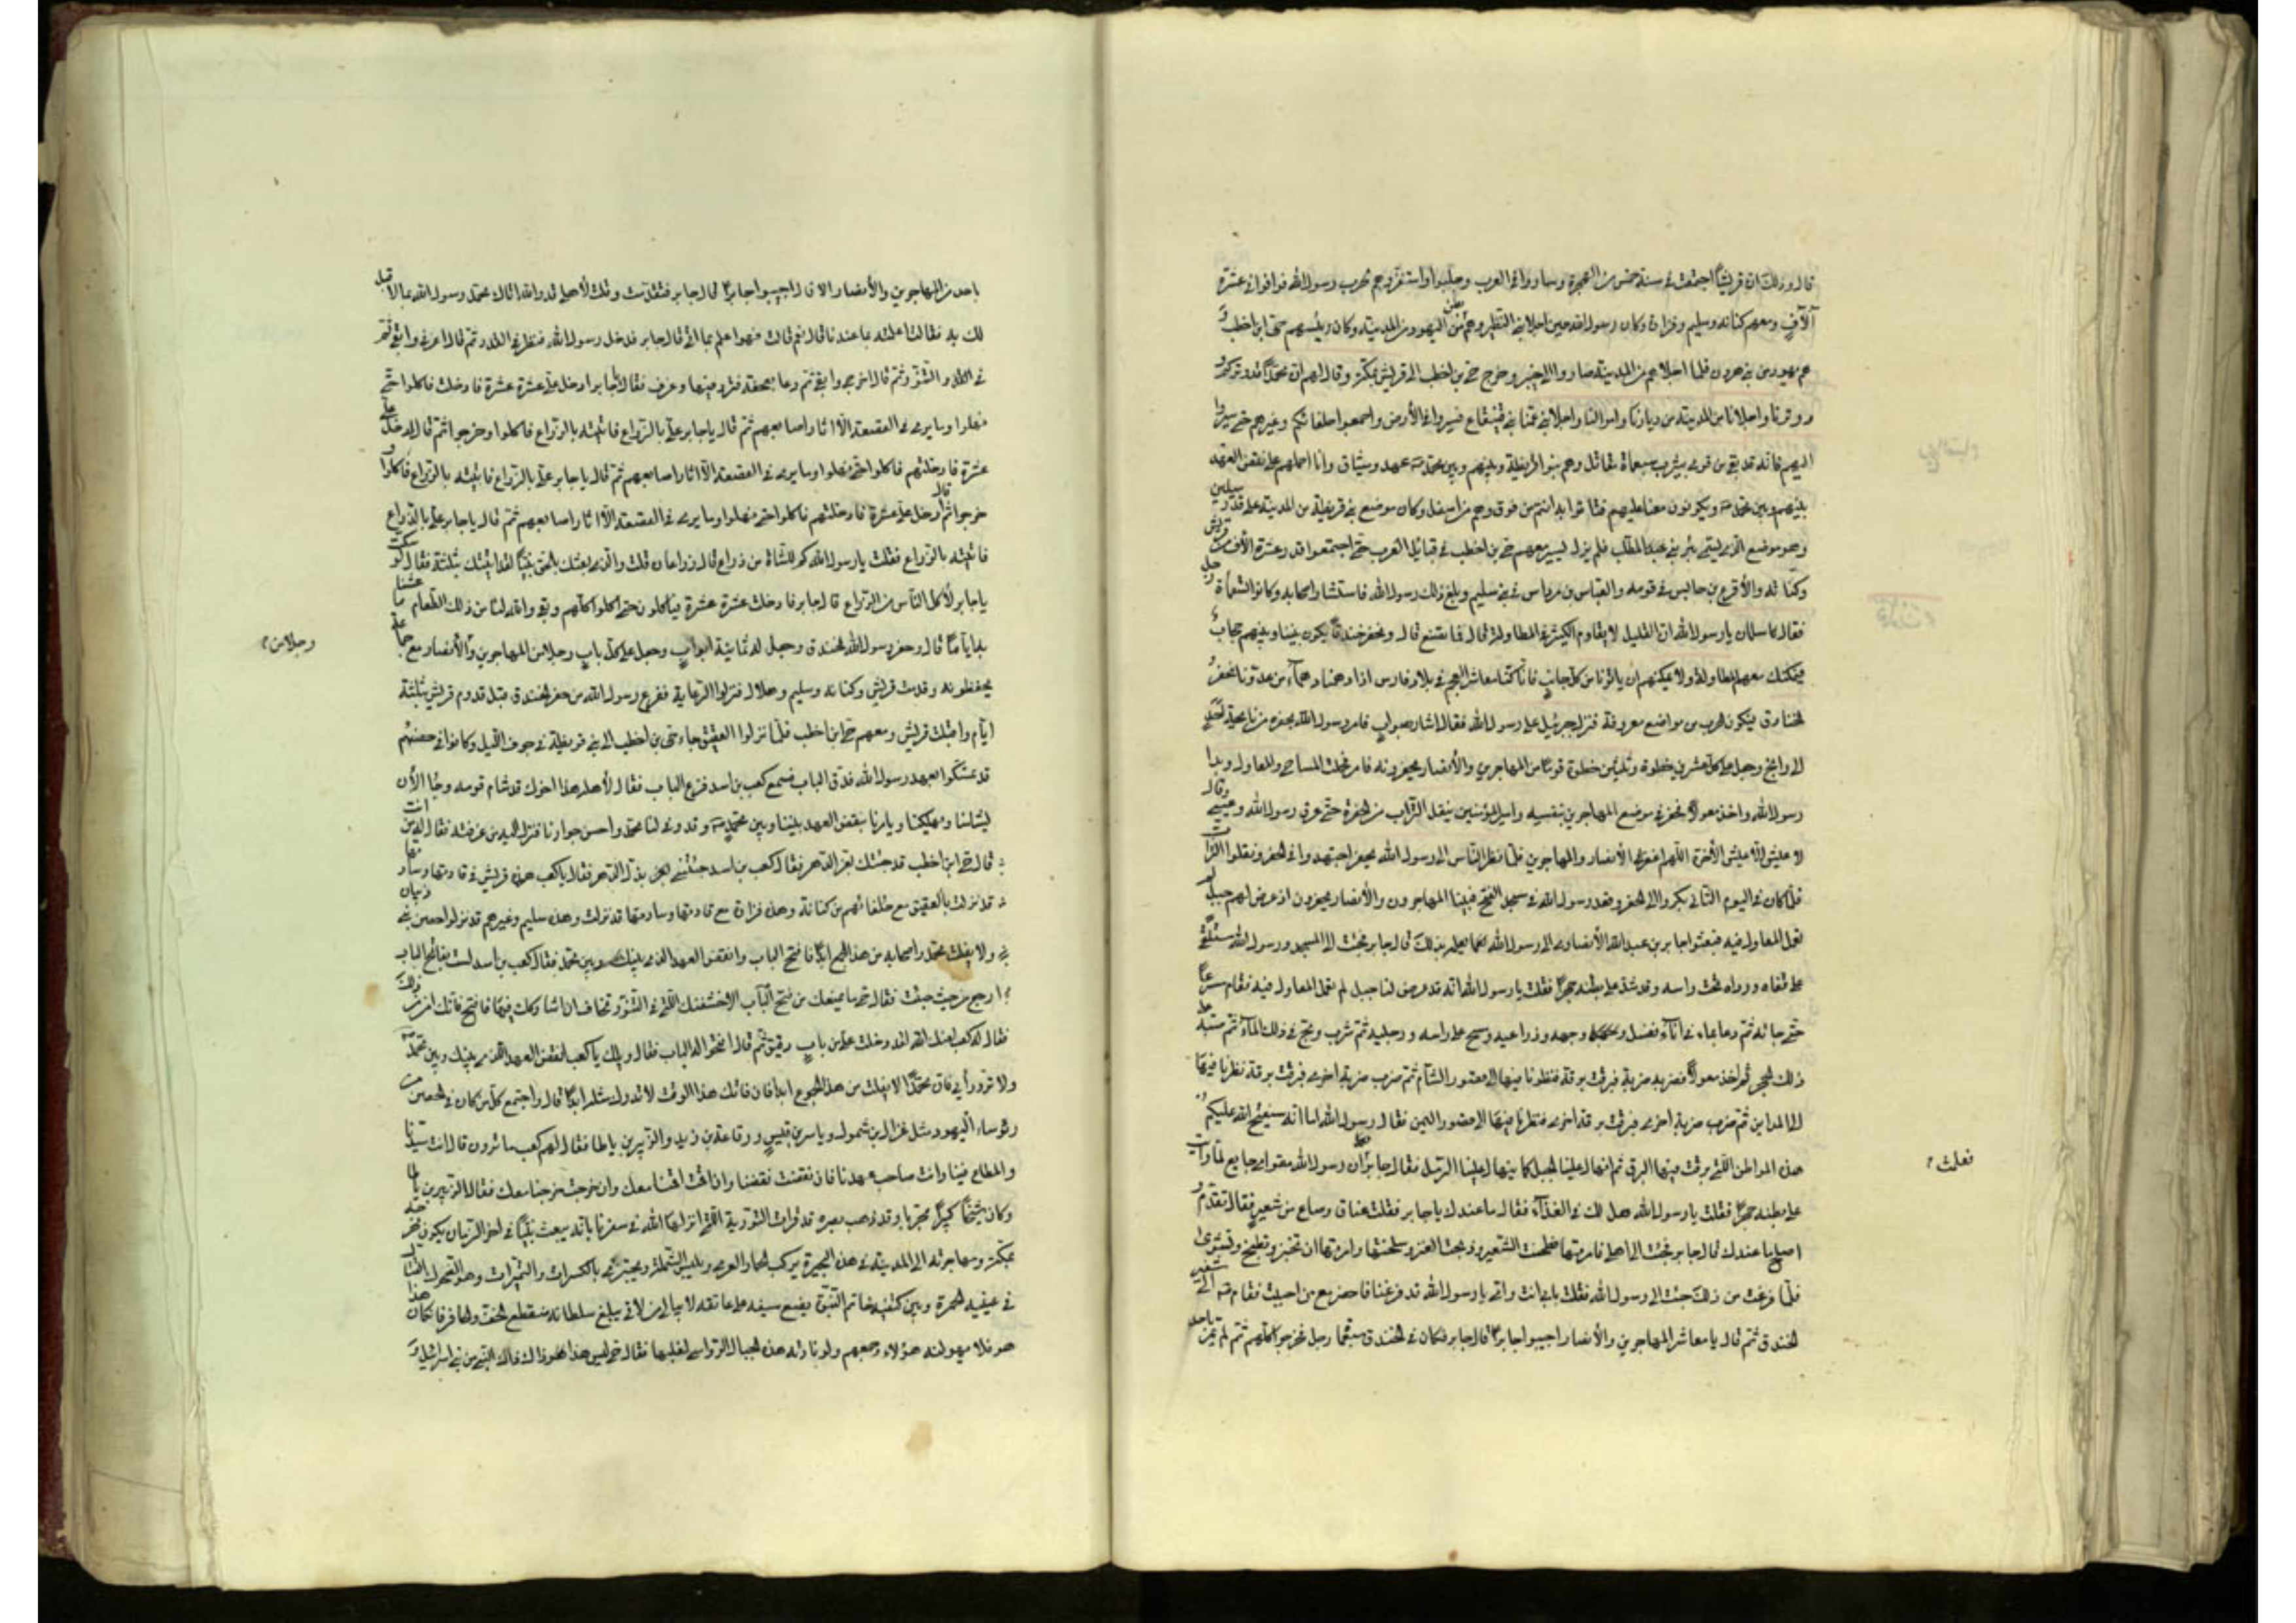 قال وذلك ان قريشاً اجتمعت في سنة خمس من الهجرة وساروا في العرب وجلبوا واستفزوهم لحرب رسول الله فوافوا في عشرة
آلاف ومعهم كنانه وسليم وفزارة وكان رسول الله حين اجلا بني النظير وهم بطن من اليهود من المدينة وكان رئيسهم حي ابن اخطب و
هم يهود من بني هرون فلما اجلاهم من المدينة صاروا الى خيبر وخرج حي بن اخطب الى قريش بمكة وقال لهم ان محمداً قد وتركم و
ووترنا واجلانا من المدينة من ديارنا واموالنا واجلا بني عمنا بني قينقاع فسيروا في الأرض واجمعوا حلفائكم وغيرهم حتى سيروا
اليهم فانه قد بقي من قومي بيثرب سبعمائة مقاتل وهم بنو قريظة وبينهم وبين محمد عهد وميثاق وانا احملهم على نقض العهد
بينهم وبين محمد ويكونون معنا عليهم فتاتوا به انتم من فوق وهم من اسفل وكان موضع بني قريظة من المدينة على قدر ميلين
وهو موضع الذي يسمى بئر بني عبد المطلب فلم يزل يسير معهم حي بن اخطب في قبائل العرب حتى اجتمعوا قدر عشرة الآف من قريش
وكنانه والأقرع بن حابس في قومه والعباس بن مرداس في بني سليم وبلغ ذلك رسول الله فاستشار اصحابه وكانوا سبعمأة رجل
فقال سلمان يا رسول الله ان القليل لا يقاوم الكثير في المطاولة قال فما نصنع قال نحفر خندقاً يكون بيننا وبينهم حجاباً
فيمكنك معهم المطاولة ولا يمكنهم ان يأتونا من كل جانب فانا كنا معاشر العجم في بلاد فارس اذا دهمنا دهماء من عدونا نحفر
الخنادق فيكون الحرب من مواضع معروفة فنزل جبرئيل على رسول الله فقال اشار بصواب فامر رسول الله بحفره من ناحية احد
الى راتج وجعل على كل عشرين خطوة وثلثين خطوة قوماً من المهاجرين والأنصار يحفرونه فامر فحملت المساحي والمعاول وبدا
رسول الله واخذ معولاً فحفر في موضع المهاجرين بنفسه وامير المؤمنين ينقل التراب من الحفرة حتى عرق رسول الله وعيى وقال
لا عيش الا عيش الآخرة اللهم اغفر للأنصار والمهاجرين فلما نظر الناس الى رسول الله يحفر اجتهدوا في الحفر ونقلوا التراب
فلما كان في اليوم الثاني بكروا الى الحفر وقعد رسول الله في مسجد الفتح فبينا المهاجرون والأنصار يحفرون اذ عرض لهم جبل لم
تعمل المعاول فيه فبعثوا جابر بن عبد الله الأنصاري الى رسول الله يعلمه بذلك قال جابر فجئت الى المسجد ورسول الله مستلقي
على قفاه ورداه تحت راسه وقد شد على بطنه حجراً فقلت يا رسول الله انه قد عرض لنا جبل لم تعمل المعاول فيه فقام مسرعاً
حتى جائه ثم دعا بماء في اناء فغسل وجهه وذراعيه ومسح على راسه ورجليه ثم شرب ومج في ذلك الماء ثم صبه على
ذلك الحجر ثم اخذ معولاً فضربه ضربة فبرقت برقة فنظرنا فيها الى قصور الشام ثم ضرب ضربة اخرى فبرقت برقة نظرنا فيها
الى المداين ثم ضرب ضربة اخرى فبرقت برقة اخرى فنظرنا فيها الى قصور اليمن فقال رسول الله اما انه سيفتح الله عليكم
هذه المواطن التي برقت فيها البرق ثم انهال علينا الجبل كما ينهال الرمل فقال جابر ان رسول الله مقوي جايع لما رأيت
على بطنه حجراً فقلت يا رسول الله هل لك في الغذاء فقال ما عندك يا جابر فقلت عناق وصاع من شعير فقال تقدم و
اصلح ما عندك قال جابر فجئت الى اهلي فامرتها فطحنت الشعير وذبحت العنز وسلختها وامرتها ان تخبز وتطبخ وتشوى
فلما فرغت من ذلك جئت الى رسول الله فقلت بابي انت وامي يا رسول الله قد فرغنا فاحضر مع من احببت فقام الى شفير
الخندق ثم قال يا معاشر المهاجرين والأنصار اجيبوا جابراً قال جابر وكان في الخندق سبعمأة رجل فخرجوا كلهم ثم لم يمر باحد
فعلت
باحد من المهاجرين والأنصار الا قال اجيبوا جابراً قال جابر فتقدمت وقلت لأهلي قد والله اتاك محمد رسول الله بما لا قبل
لك به فقالت اعلمته بما عندنا قال نعم قالت فهو اعلم بما اتى قال جابر فدخل رسول الله فنظر في القدر ثم قال اغرفي وابقي ثم نظر
في التنور ثم قال اخرجي وابقي ثم دعا بصحفة فثرد فيها وغرف فقال يا جابر ادخل علي عشرة عشرة فادخلت فاكلوا حتى
نهلوا وما يرى في القصعة الا آثار اصابعهم ثم قال يا جابر علي بالذراع فاتيته بالذراع فاكلوا وخرجوا ثم قال ادخل علي
عشرة فادخلتهم فاكلوا حتى نهلوا وما يرى في القصعة الا آثار اصابعهم ثم قال يا جابر علي بالذراع فاتيته بالذراع فاكلوا و
خرجوا ثم قال ادخل علي عشرة فادخلتهم فاكلوا حتى نهلوا وما يرى في القصعة الا آثار اصابعهم ثم قال يا جابر علي بالذراع
فاتيته بالذراع فقلت يا رسول الله كم للشاة من ذراع قال ذراعان قلت والذي بعثك بالحق نبياً لقد اتيتك بثلثة فقال لو سكت
يا جابر لأكل الناس من الذراع قال جابر فادخلت عشرة عشرة فيأكلون حتى اكلوا كلهم وبقي والله لنا من ذلك الطعام ما عشنا
به اياماً قال وحفر رسول الله الخندق وجعل له ثمانية ابواب وجعل على كل باب رجلا من المهاجرين والأنصار مع جماعة
ورجلا من
يحفظونه وقدمت قريش وكنانه وسليم وهلال فنزلوا الزغابة ففرغ رسول الله من حفر الخندق قبل قدوم قريش بثلثة
ايام واقبلت قريش ومعهم حي ابن اخطب فلما نزلوا العقيق جاء حي بن اخطب الى بني قريظة في جوف الليل وكانوا في حصنهم
قد تمسكوا بعهد رسول الله فدق الباب فسمع كعب بن اسد قرع الباب فقال لأهله هذا اخوك قد شام قومه وجاء الآن
يشامنا ويهلكنا ويأمرنا بنقض العهد بيننا وبين محمد وقد وفى لنا محمد واحسن جوارنا فنزل اليه من غرفته فقال له من انت
قال حي ابن اخطب قد جئتك بعز الدهر فقال كعب بن اسد جئتني بذل الدهر فقال يا كعب هذه قريش في قادتها وسادتها
قد نزلت بالعقيق مع حلفائهم من كنانة وهذه فزارة مع قادتها وسادتها قد نزلت وهذه سليم وغيرهم قد نزلوا حصن بني ذبيان
ولا يفلت محمد واصحابه من هذا الجمع ابداً فافتح الباب وانقض العهد الذي بينك وبين محمد فقال كعب بن اسد لست بفاتح الباب
ارجع من حيث جئت فقال حي ما يمنعك من فتح الباب الا خشيشتك التي في التنور تخاف ان اشاركك فيها فافتح فانك آمن من ذلك
فقال له كعب لعنك الله لقد دخلت علي من باب دقيق ثم قال افتحوا له الباب فقال ويلك يا كعب انقض العهد الذي بينك وبين محمد
ولا ترد رأيي فان محمداً لا يفلت من هذه الجموع ابداً فان فاتك هذا الوقت لا تدرك مثله ابداً قال واجتمع كل من كان في الحصن من
رؤساء اليهود مثل غزال بن شمول وياسر بن قيس ورفاعة بن زيد والزبير بن باطا فقال لهم كعب ما ترون قالوا انت سيدنا
والمطاع فينا وانت صاحب عهدنا فان نقضت نقضنا وان اقمت اقمنا معك وان خرجت خرجنا معك فقال الزبير بن باطا
وكان شيخاً كبيراً مجرباً وقد ذهب بصره قد قرأت التورية التي انزلها الله في سفرنا بانه يبعث نبياً في آخر الزمان يكون مخرجه
بمكة ومهاجرته الى المدينة في هذه البحيرة يركب الحمار العرى ويلبس الشملة ويجتزئ بالكسرات والتميرات وهو الضحوك القتال
في عينيه الحمرة وبين كتفيه خاتم النبوة يضع سيفه على عاتقه لا يبالي من لاقى يبلغ سلطانه منقطع الخف والحافر فان كان هذا
هو فلا يهولنه هؤلاء وجمعهم ولو ناوته هذه الجبال الرواسي لغلبها فقال حي ليس هذا ذاك ذاك النبي من بني اسرائيل و